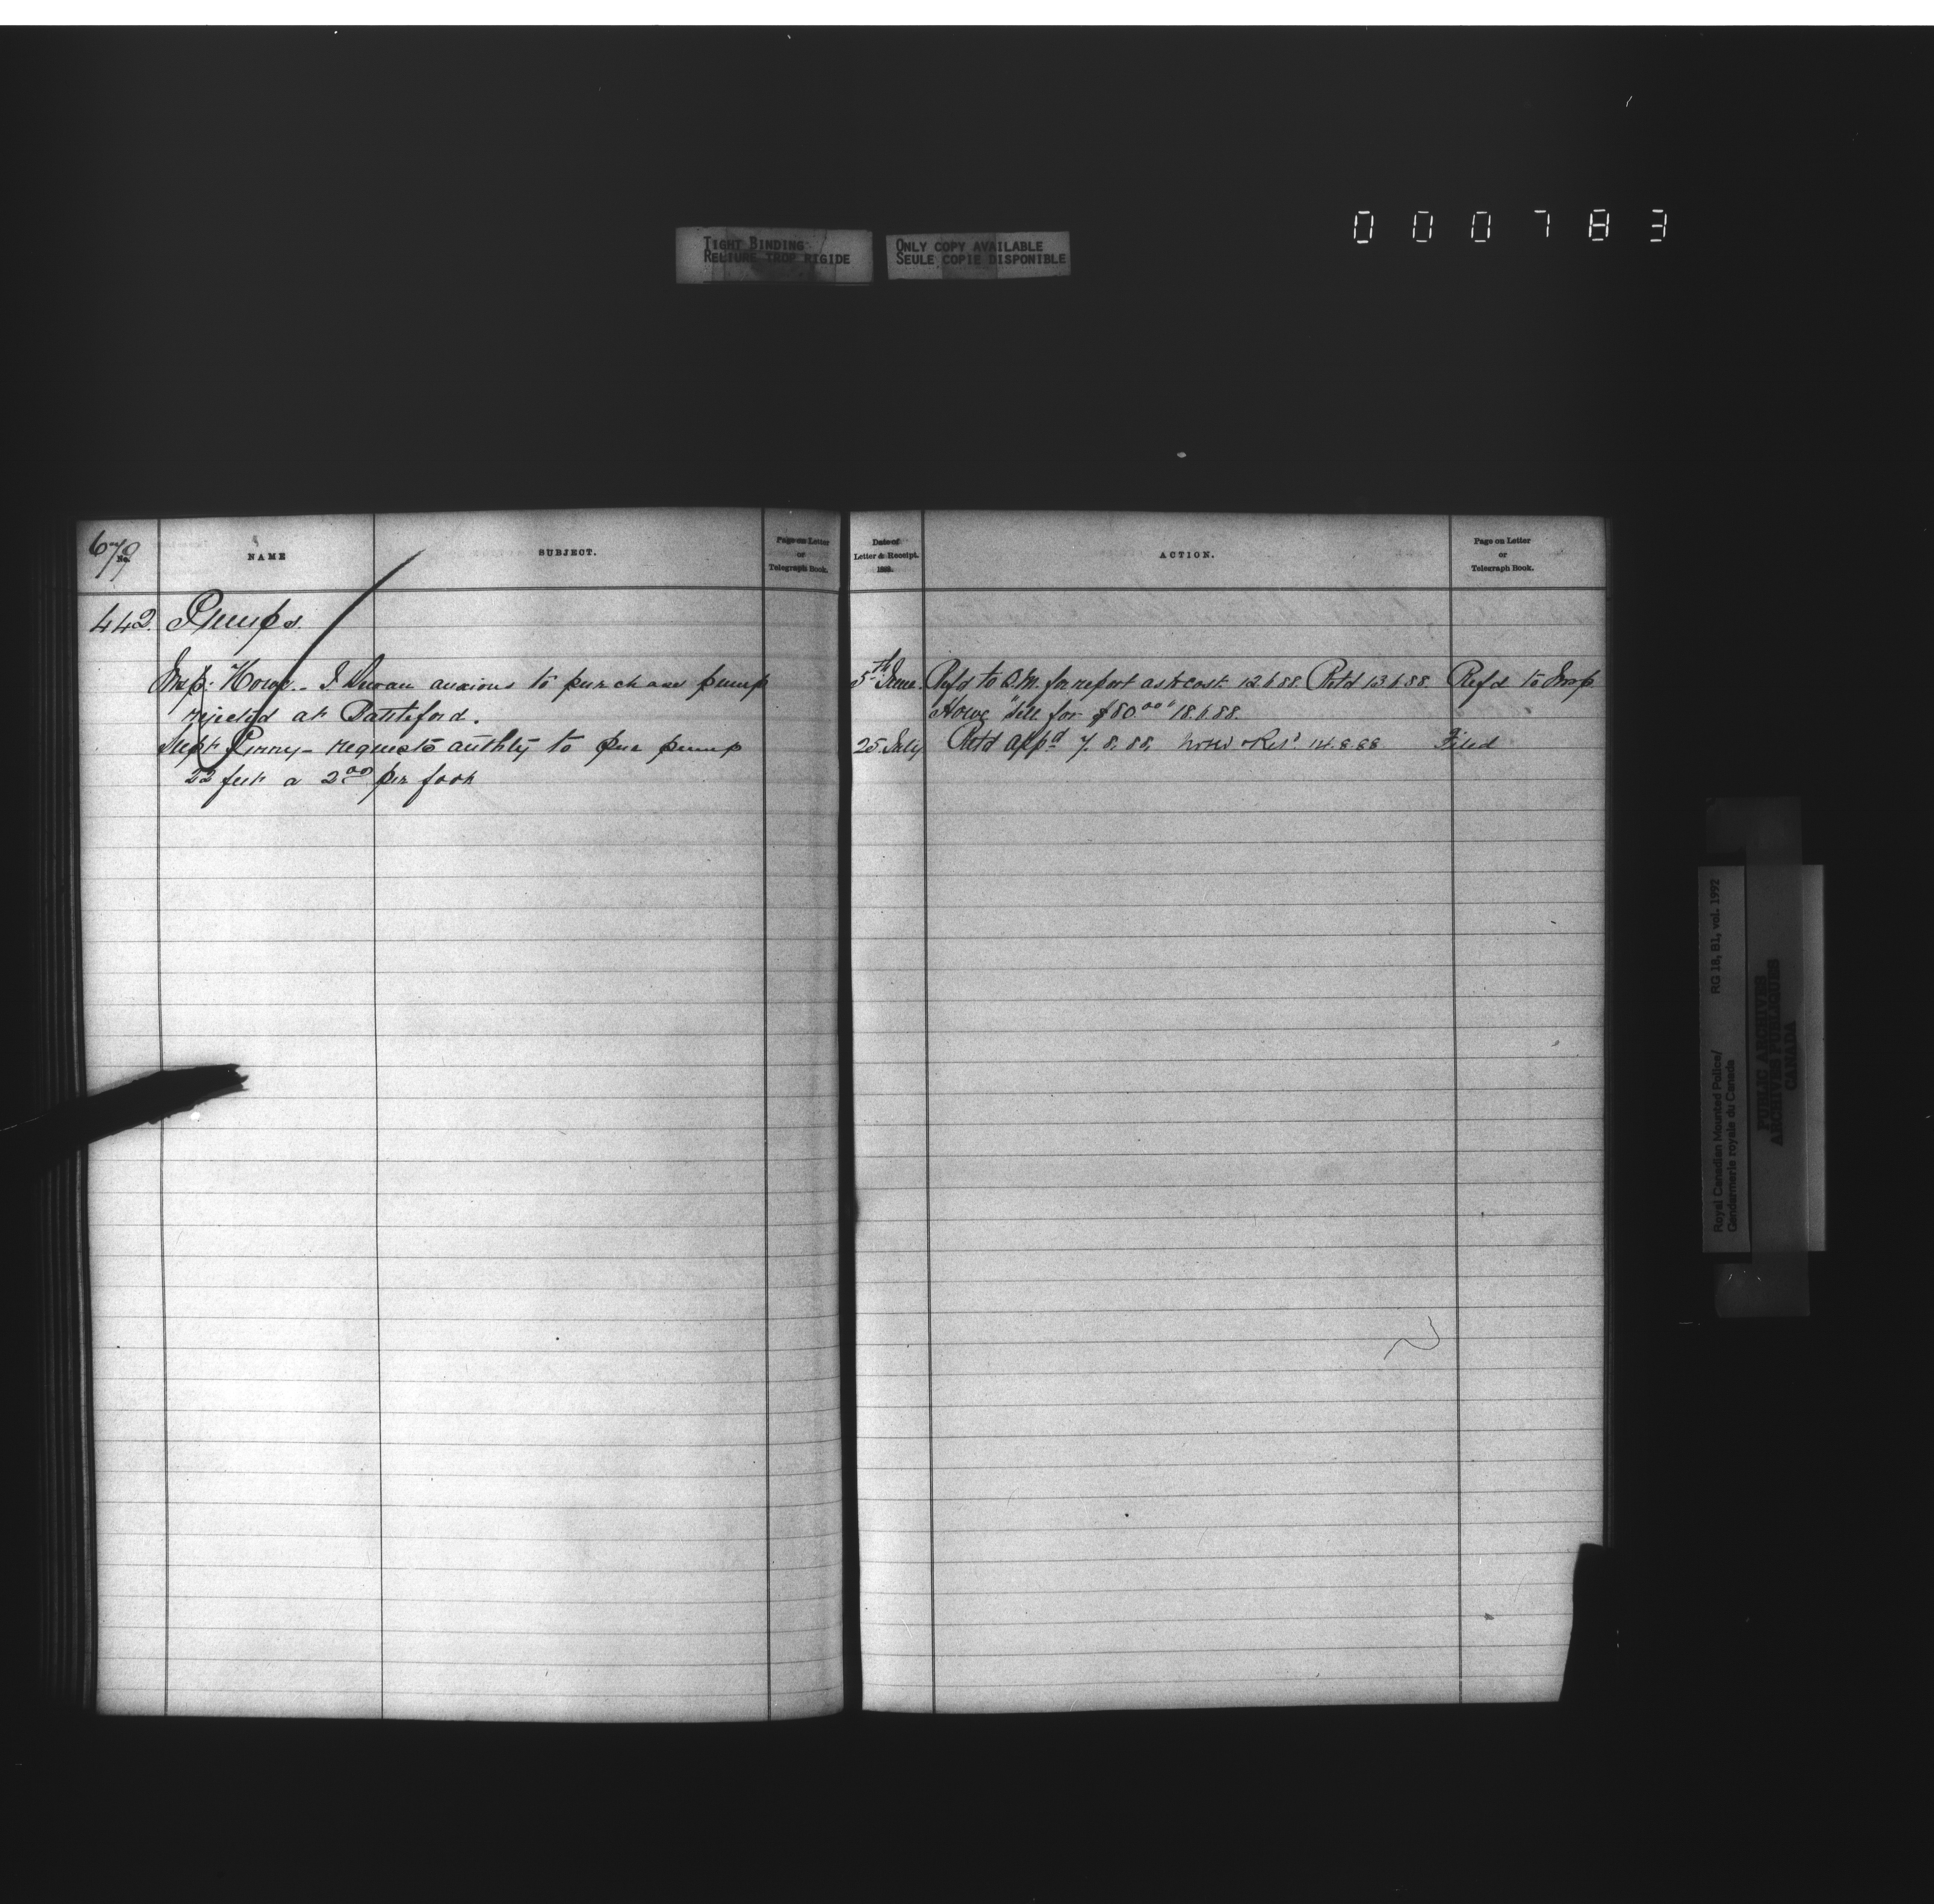 000783
TIGHT BINDING
RELIURE TROP RIGIDE
ONLY COPY AVAILABLE
SEULE COPIE DISPONIBLE
679
No.
NAME
SUBJECT.
Page on Letter
or
Telegraph Book.
442. Pumps.
Insp. Howe - J anxious to purchase pump
rejected at Battleford.
Supt Perry - requests authty to pur pump
22 feet a 2.00 per foot
Date of
Letter & Receipt.
188
ACTION.
Page on Letter
or
Telegraph Book.
5th June. Refd to Q.M. for report as to cost 12.6.88. Retd 13.6.88. Refd to Insp
Howe "sell for $80.00" 18.6.88.
25 July Retd appd 7.8.88. 14.8.88 Filed
Royal Canadian Mounted Police/ RG 18, B1, vol. 1992
Gendarmerie royale du Canada
PUBLIC ARCHIVES
ARCHIVES PUBLIQUES
CANADA